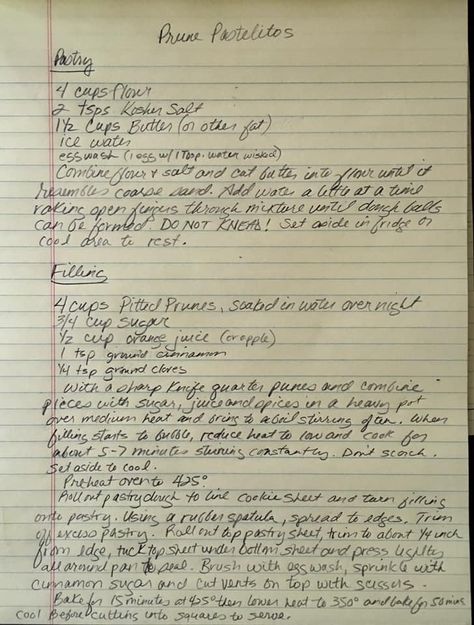 Prune Pastelitos
Pastry
4 cups flour
2 tsps Kosher Salt
1½ Cups Butter (or other fat)
ice water
eggwash (1 egg w/ 1 Tbsp. water wisked)
Combine flour & salt and cut butter into flour until it
resembles coarse sand. Add water a little at a time
raking open fingers through mixture until dough balls
can be formed. DO NOT KNEAD! Set aside in fridge or
cool area to rest.
Filling
4 cups Pitted Prunes, soaked in water over night
3/4 cup sugar
½ cup orange juice (or apple)
1 tsp ground cinnamon
¼ tsp ground cloves
With a sharp knife quarter prunes and combine
pieces with sugar, juice and spices in a heavy pot
over medium heat and bring to a boil stirring often. When
filling starts to bubble, reduce heat to low and cook for
about 5-7 minutes stirring constantly. Don't scorch.
Set aside to cool.
Preheat oven to 425°
Roll out pastry dough to line cookie sheet and turn filling
onto pastry. Using a rubber spatula, spread to edges. Trim
off excess pastry. Roll out top pastry sheet, trim to about ¼ inch
from edge, tuck top sheet under bottom sheet and press lightly
all around pan to seal. Brush with egg wash, sprinkle with
cinnamon sugar and cut vents on top with scissors.
Bake for 15 minutes at 425° then lower heat to 350° and bake for 50 mins
Cool Before cutting into squares to serve.